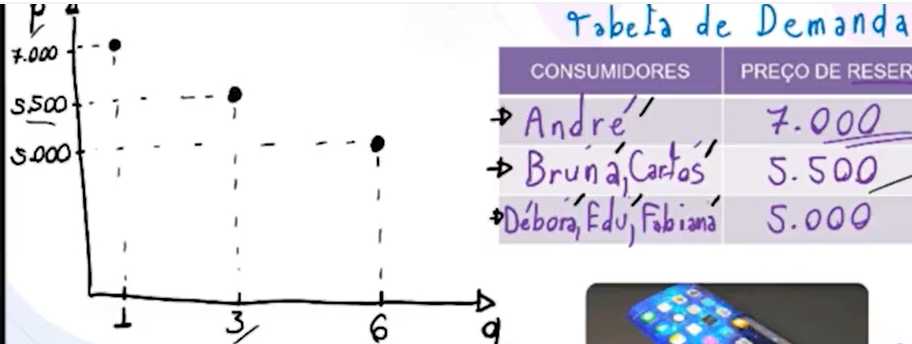 P
7.000
5.500
5.000
1
3
6
q
Tabela de Demanda
CONSUMIDORES PREÇO DE RESER
André 7.000
Bruna, Carlos 5.500
Débora, Edu, Fabiana 5.000